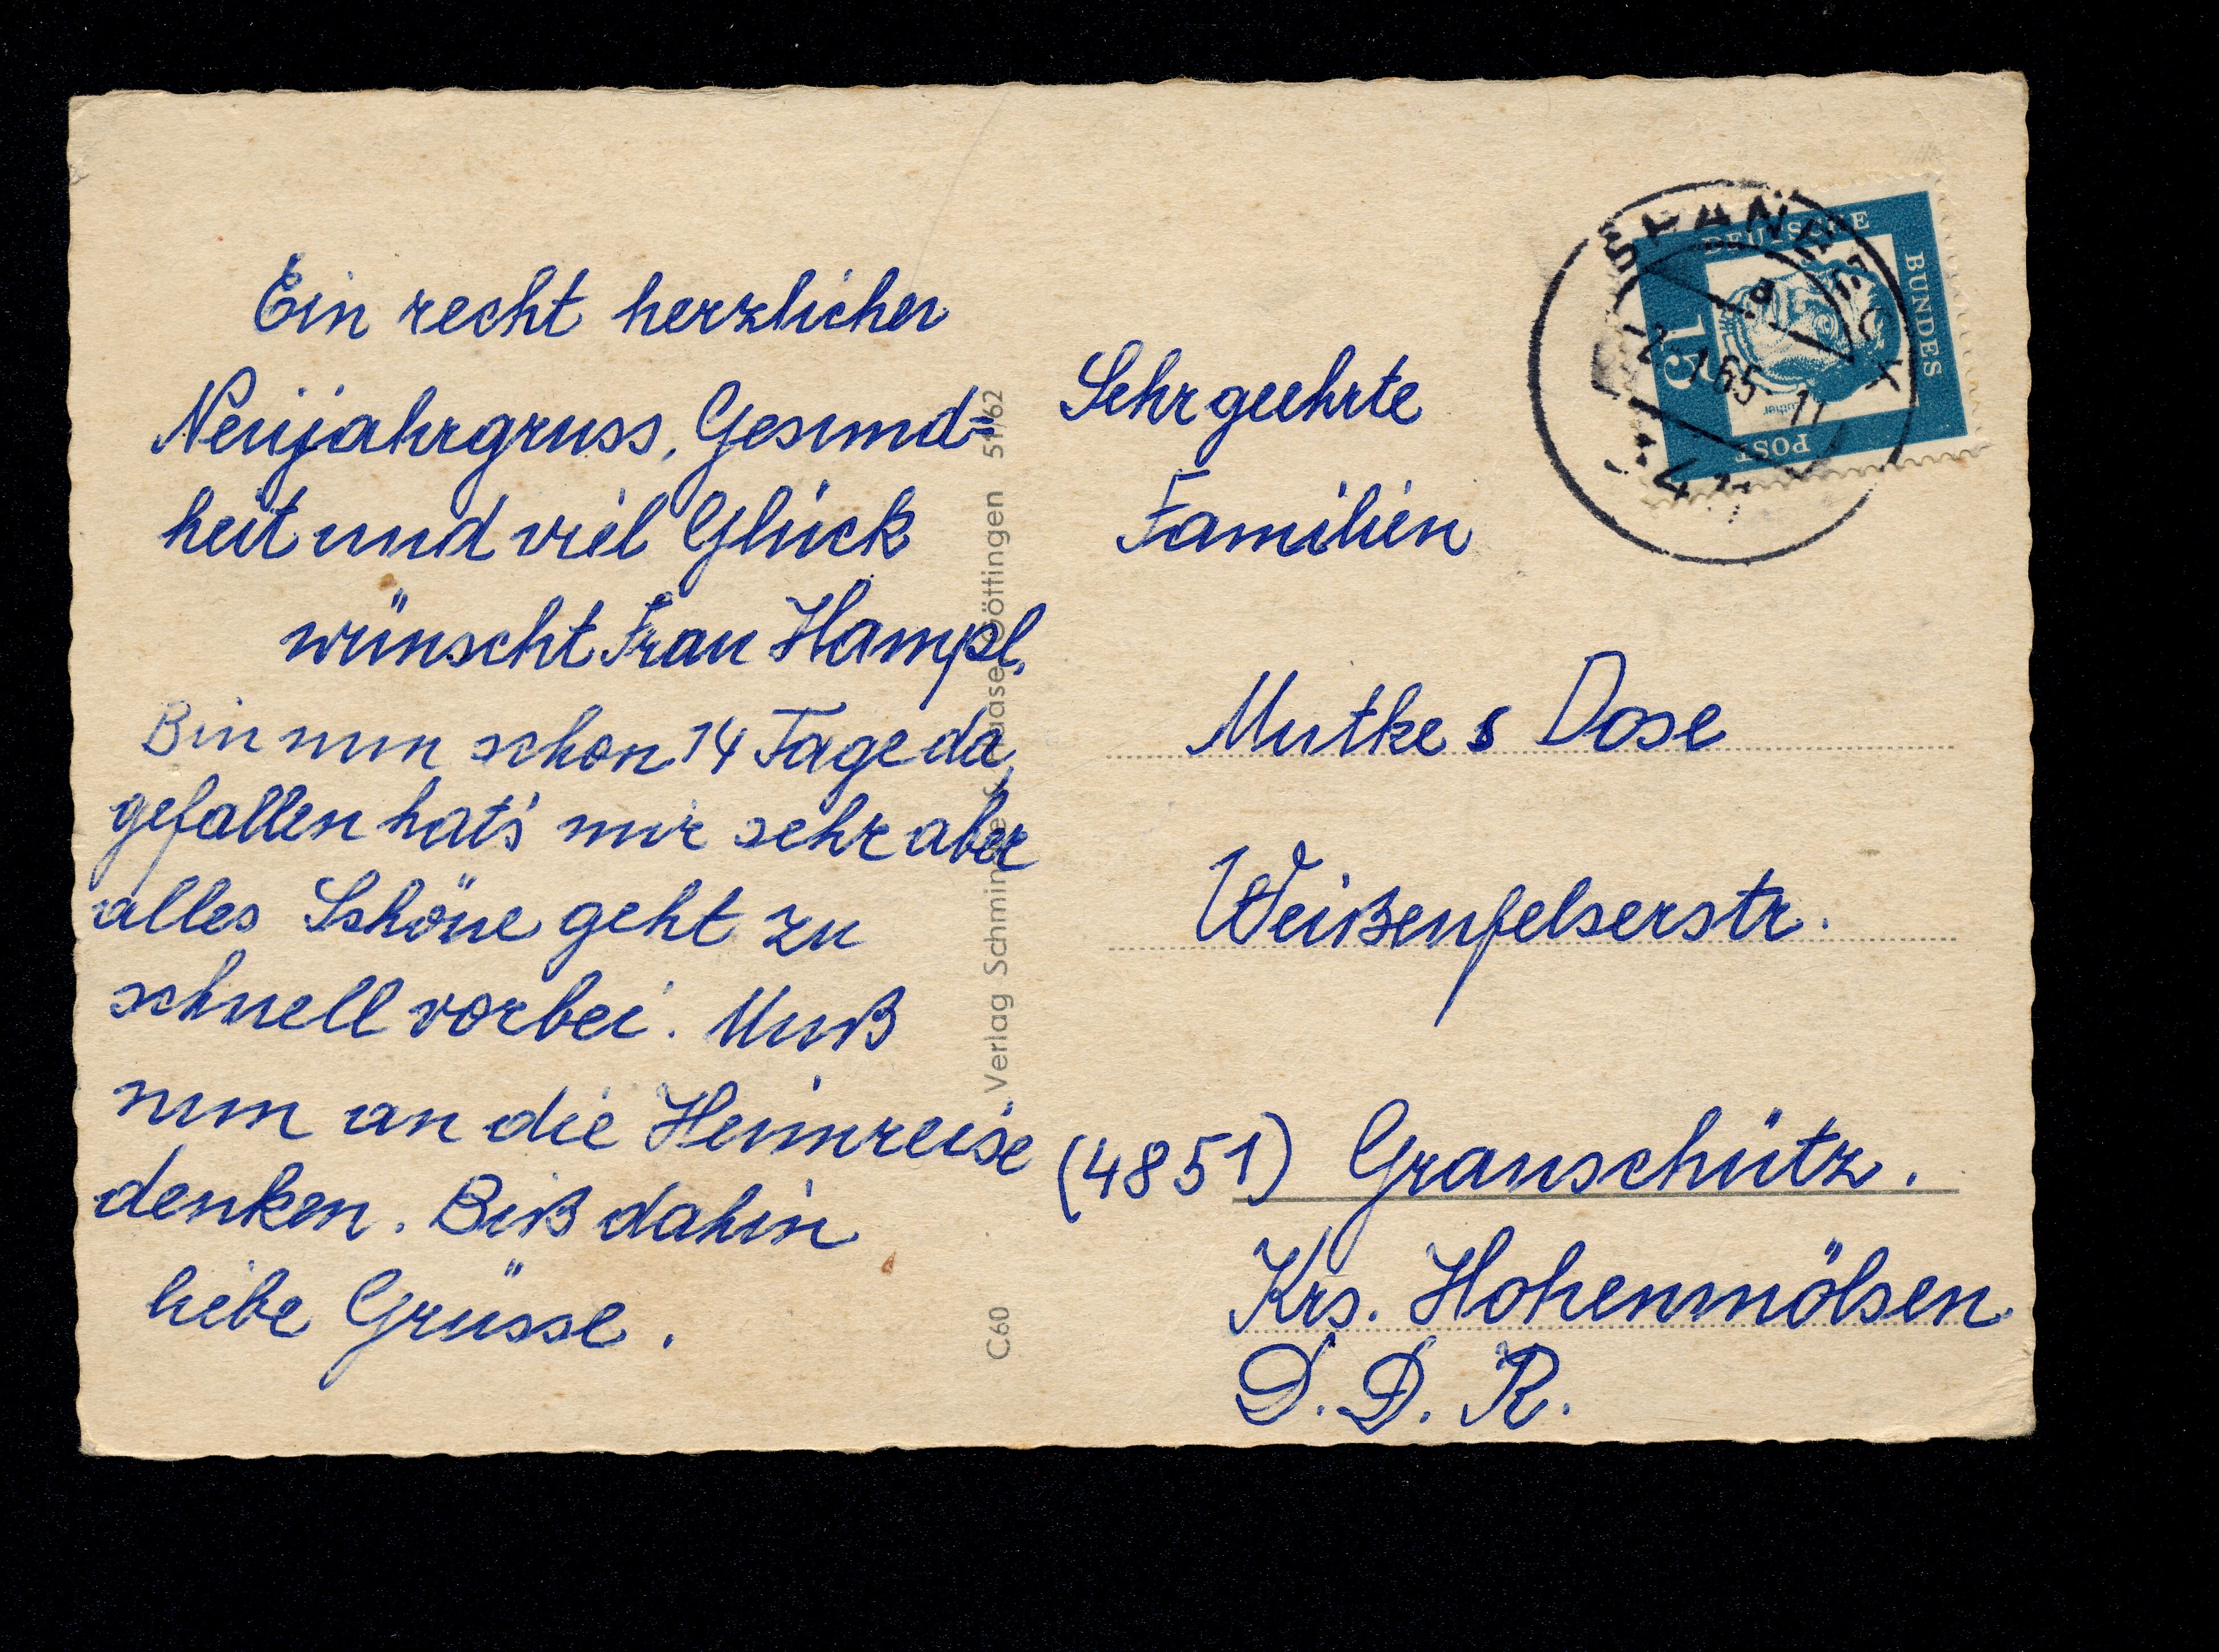 Ein recht herzlicher
Neujahrgruss, Gesund=
heit und viel Glück
wünscht Frau Hampl.
Bin nun schon 14 Tage da,
gefallen hat's mir sehr aber
alles Schöne geht zu
schnell vorbei. Muß
nun an die Heimreise
denken. Biß dahin
liebe Grüsse.
Verlag Schmin Göttingen 51/62
C60
DEUTSCHE
BUNDES
POST
15
a
65-11
Sehr geehrte
Familien
Mutke s Dose
Weißenfelserstr.
(4851) Granschütz.
Krs. Hohenmölsen
D.D.R.